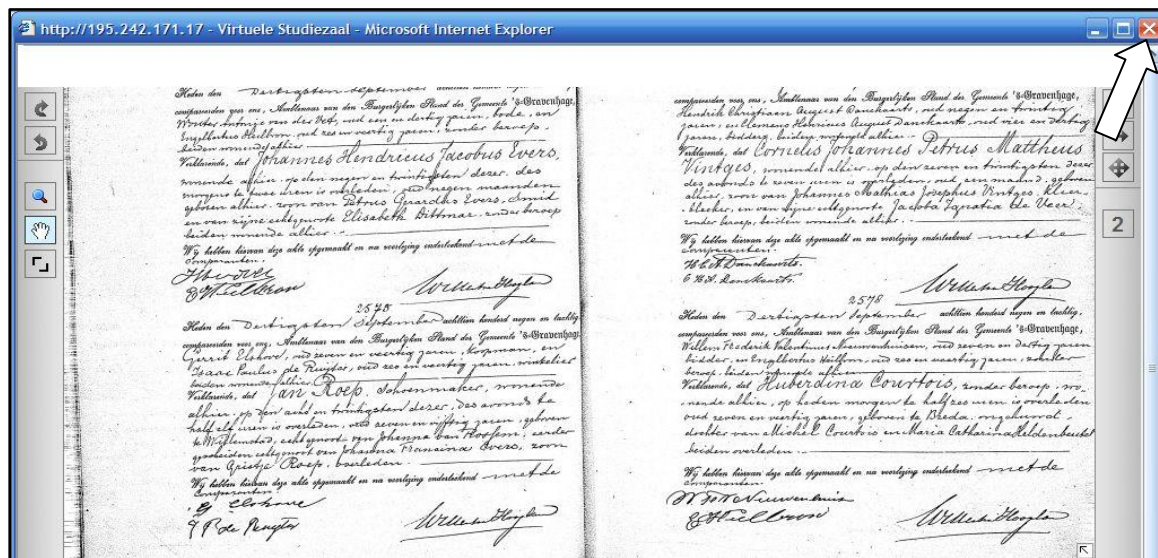 http://195.242.171.17 - Virtuele Studiezaal - Microsoft Internet Explorer
Heden den Dertigsten September
compareerden voor ons, Ambtenaar van den Burgerlijken Stand der Gemeente 's-Gravenhage,
Wouter Antonje van der Vet, oud een en dertig jaren, bode, en
Engelbertus Heilbron, oud zes en veertig jaren, zonder beroep,
beiden wonende alhier
Verklarende, dat Johannes Hendricus Jacobus Evers,
wonende alhier, op den negen en twintigsten dezer, des
morgens te twee uren is overleden, oud negen maanden,
geboren alhier, zoon van Petrus Gerardus Evers, smid
en van zijne echtgenoote Elisabeth Bittmar, zonder beroep
beiden wonende alhier.
Wij hebben hiervan deze akte opgemaakt en na voorlezing onderteekend met de
Comparanten.
2578
Heden den Dertigsten September achttien honderd negen en tachtig
compareerden voor ons, Ambtenaar van den Burgerlijken Stand der Gemeente 's-Gravenhage,
Gerrit Elshove, oud zeven en veertig jaren, koopman, en
Isaac Paulus de Ruyter, oud zes en veertig jaren, winkelier
beiden wonende alhier
Verklarende, dat Jan Roep, Schoenmaker, wonende
alhier, op den acht en twintigsten dezer, des avonds te
half elf uren is overleden, oud zeven en vijftig jaren, geboren
te Willemstad, echtgenoot van Johanna van Rossem, eerder
gescheiden echtgenoot van Johanna Fransina Evers, zoon
van Grietje Roep, overleden.
Wij hebben hiervan deze akte opgemaakt en na voorlezing onderteekend met de
Comparanten.
G Elshove
I P de Ruyter
compareerden voor ons, Ambtenaar van den Burgerlijken Stand der Gemeente 's-Gravenhage,
Hendrik Christiaan August Danckaarts, oud negen en twintig
jaren, en Clemens Hubricus August Danckaarts, oud vier en dertig
jaren, bidders, beiden wonende alhier
Verklarende, dat Cornelis Johannes Petrus Mattheus
Vintges, wonende alhier, op den zeven en twintigsten dezer
des avonds te zeven uren is overleden, oud een maand, geboren
alhier, zoon van Johannes Mathias Josephus Vintges, kleer-
bleeker, en van zijne echtgenoote Jacoba Ignatia de Veer,
zonder beroep, beiden wonende alhier.
Wij hebben hiervan deze akte opgemaakt en na voorlezing onderteekend met de
Comparanten.
H C A Danckaarts.
C H A. Danckaarts.
2578
Heden den Dertigsten September achttien honderd negen en tachtig,
compareerden voor ons, Ambtenaar van den Burgerlijken Stand der Gemeente 's-Gravenhage,
Willem Frederik Valentinus Nieuwenhuisen, oud zeven en dertig jaren
bidder, en Engelbertus Heilbron, oud zes en veertig jaren, zonder
beroep, beiden wonende alhier
Verklarende, dat Huberdina Courtois, zonder beroep, wo-
nende alhier, op heden morgen te half zes uren is overleden
oud zeven en veertig jaren, geboren te Breda, ongehuwd,
dochter van Michel Courtois en Maria Catharina Heldenbeutel
beiden overleden.
Wij hebben hiervan deze akte opgemaakt en na voorlezing onderteekend met de
Comparanten.
2